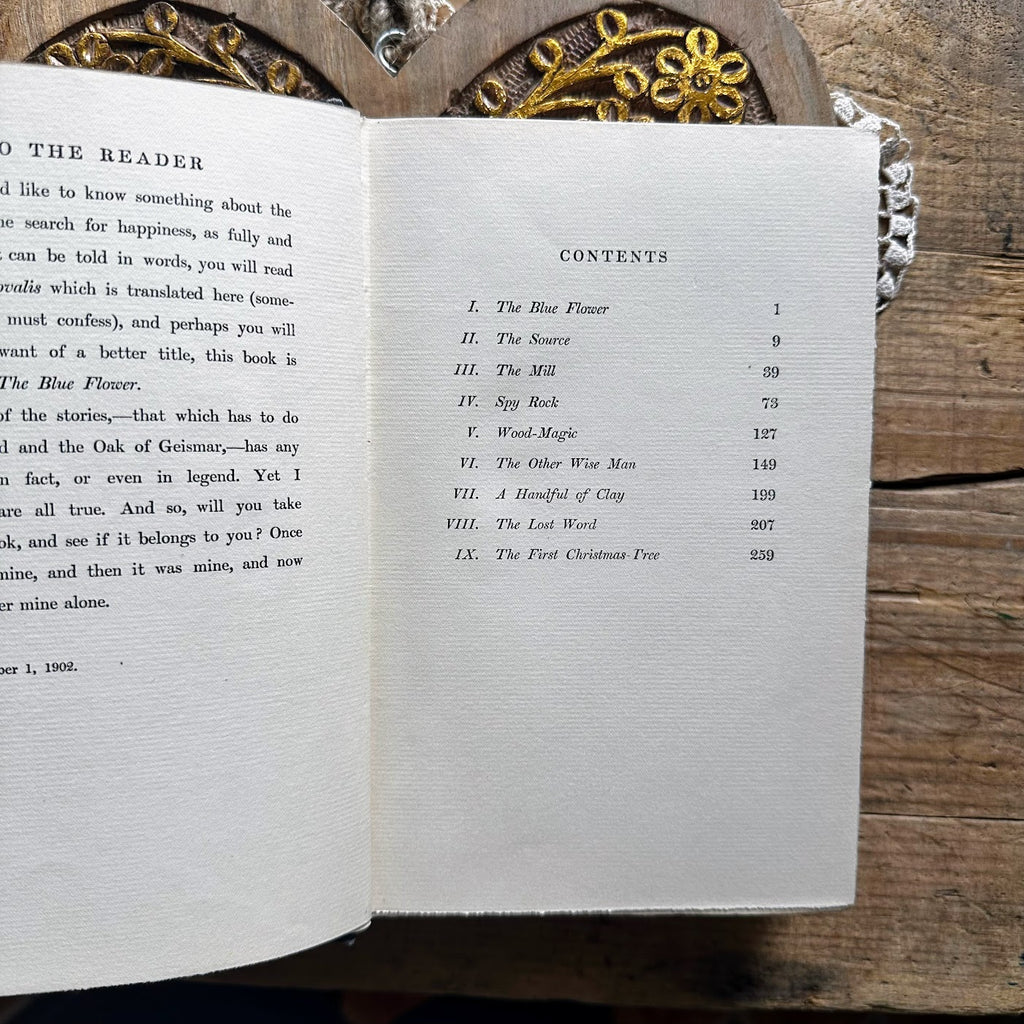 O THE READER
d like to know something about the
he search for happiness, as fully and
can be told in words, you will read
ovalis which is translated here (some-
must confess), and perhaps you will
want of a better title, this book is
The Blue Flower.
of the stories,—that which has to do
d and the Oak of Geismar,—has any
n fact, or even in legend. Yet I
are all true. And so, will you take
ok, and see if it belongs to you? Once
mine, and then it was mine, and now
er mine alone.
ber 1, 1902.
CONTENTS
I. The Blue Flower 1
II. The Source 9
III. The Mill 39
IV. Spy Rock 73
V. Wood-Magic 127
VI. The Other Wise Man 149
VII. A Handful of Clay 199
VIII. The Lost Word 207
IX. The First Christmas-Tree 259